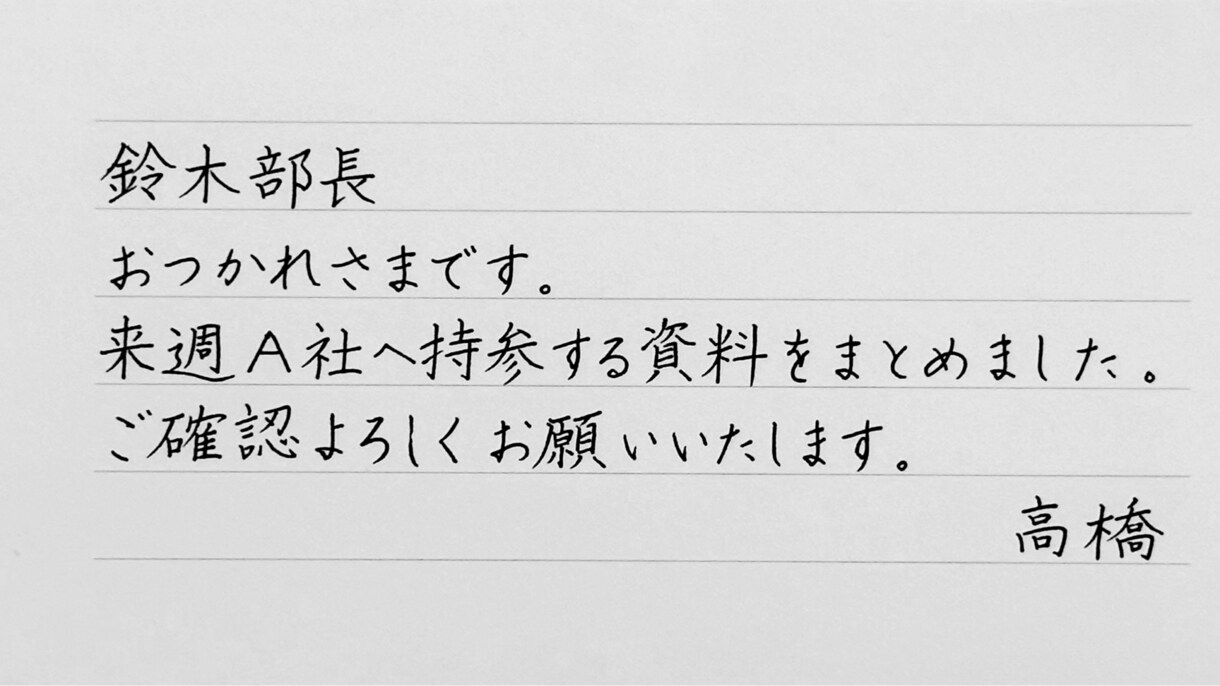 鈴木部長
おつかれさまです。
来週A社へ持参する資料をまとめました。
ご確認よろしくお願いいたします。
高橋